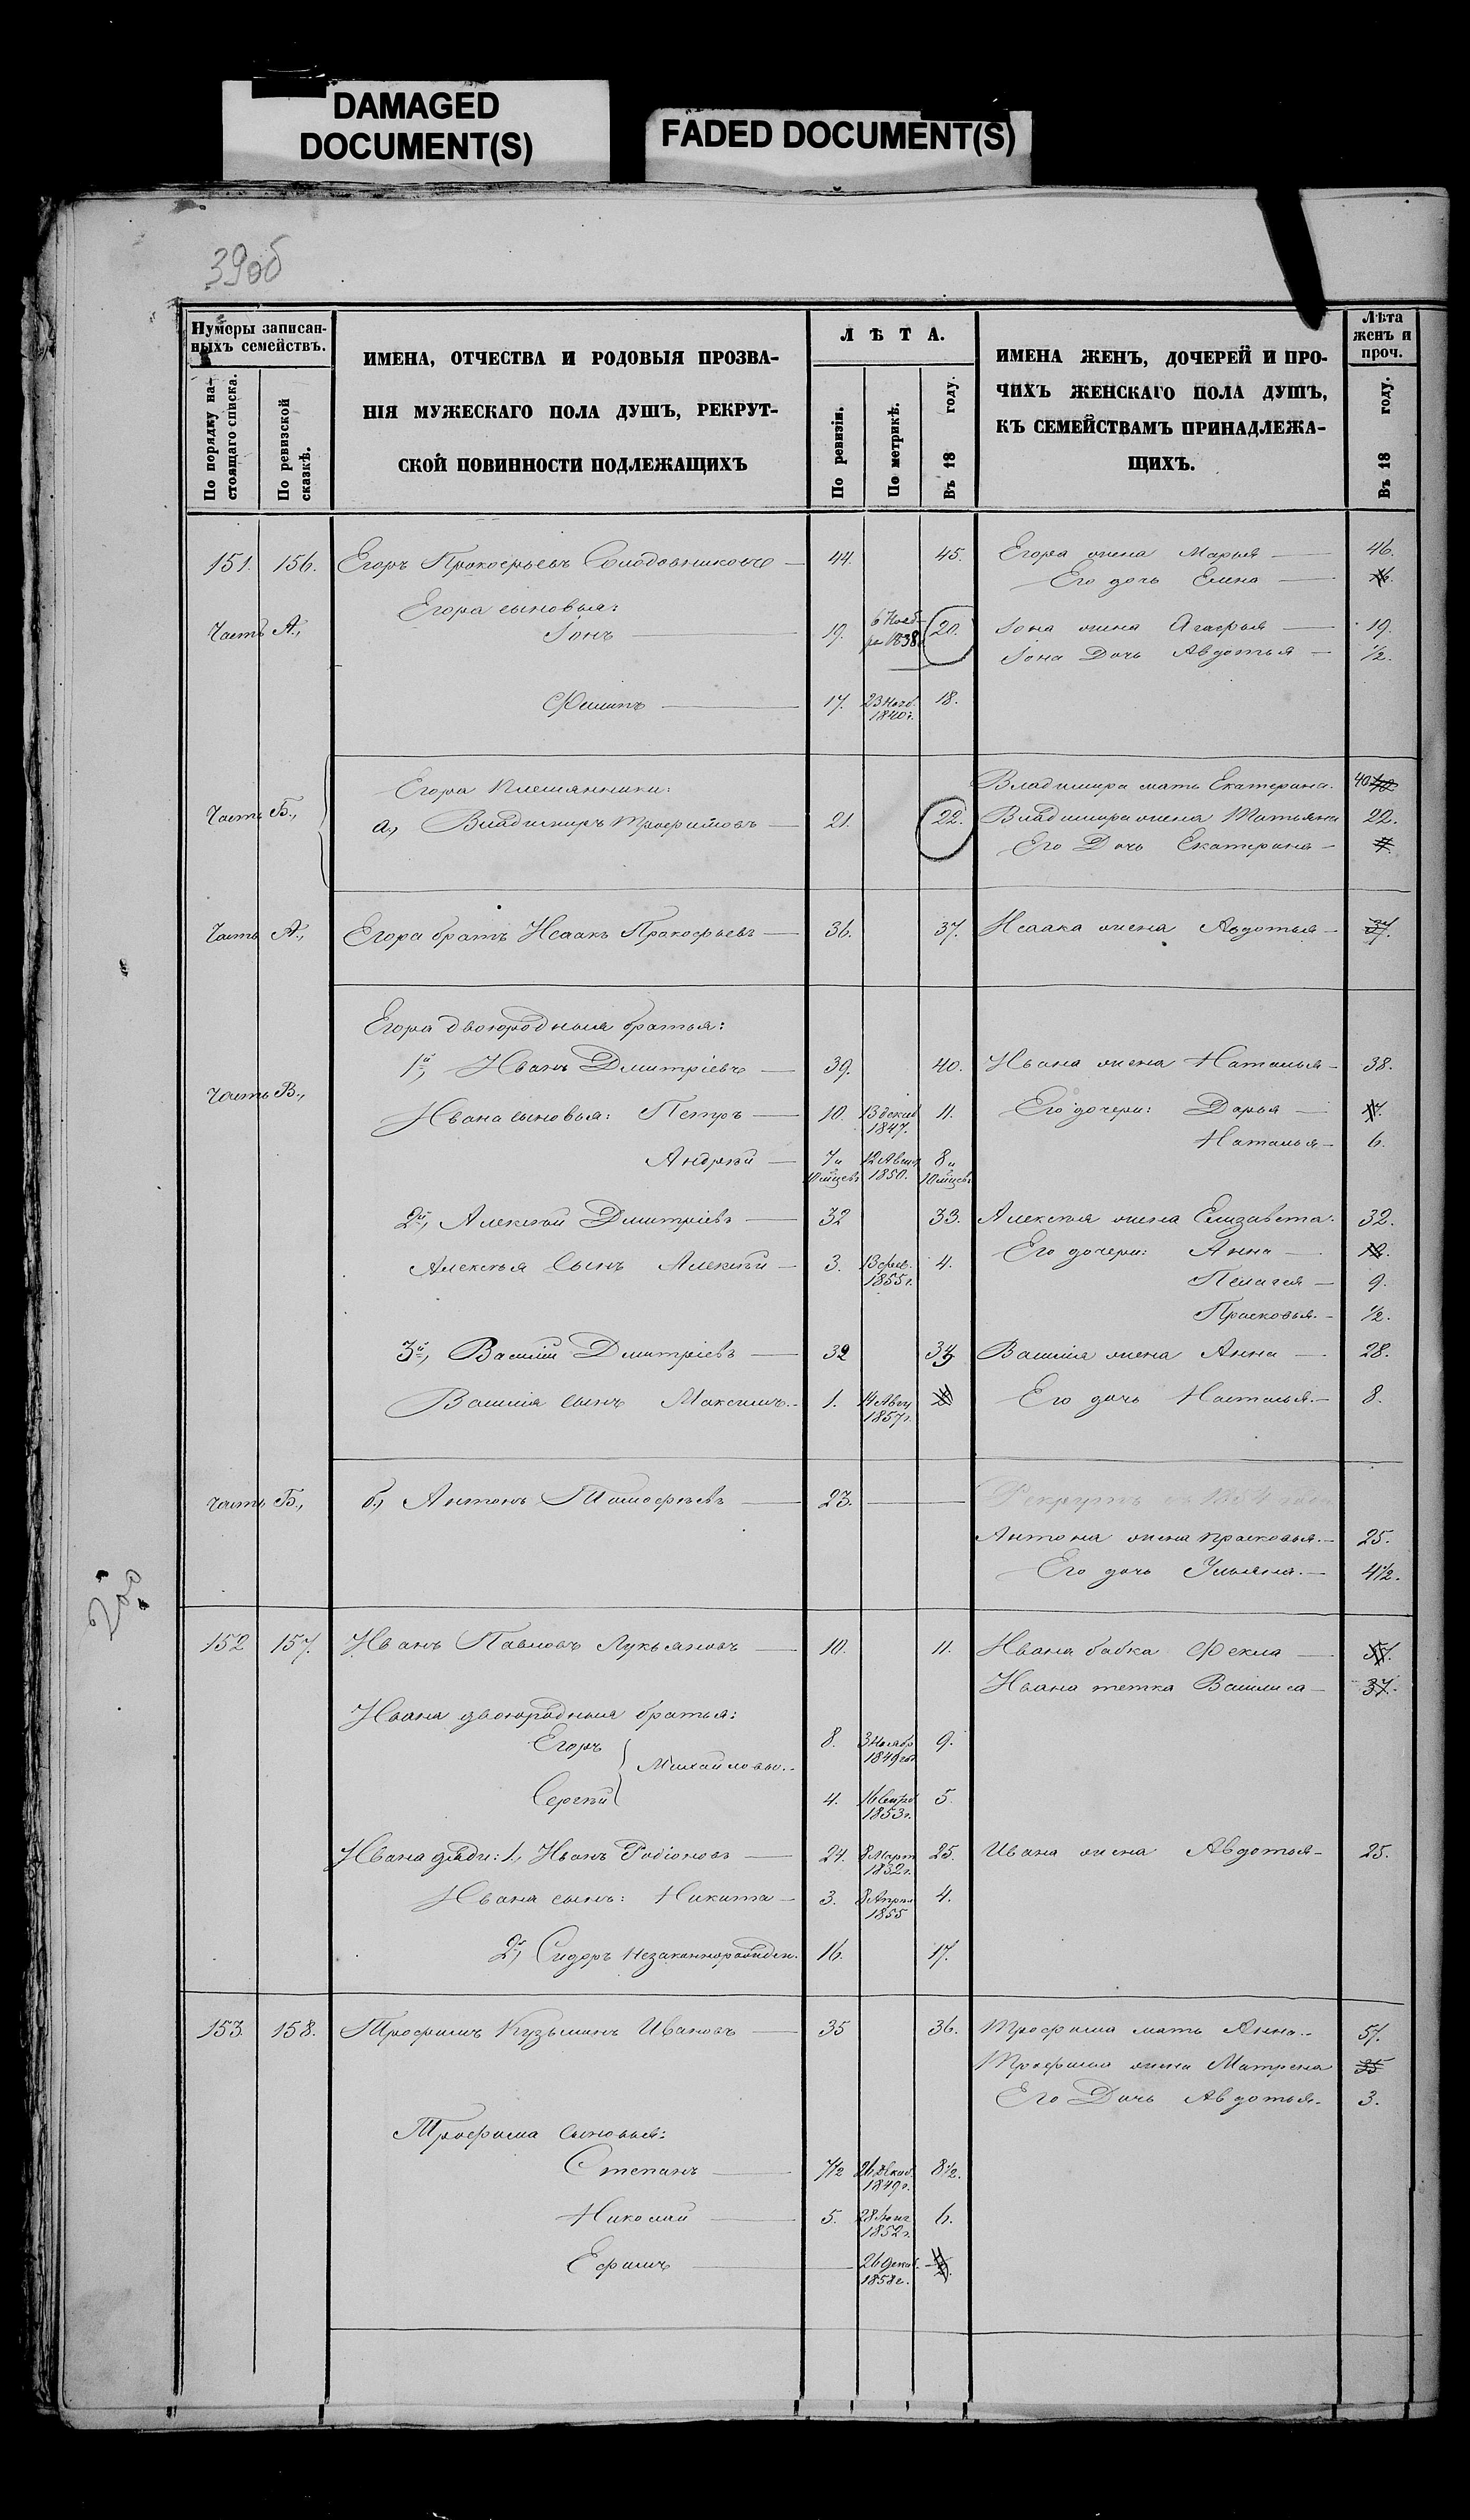 DAMAGED
DOCUMENT(S)
FADED DOCUMENT(S)
39об
Нумеры записан-
ныхъ семействъ.
По порядку на-
стоящаго списка.
По ревизской
сказкѣ.
ИМЕНА, ОТЧЕСТВА И РОДОВЫЯ ПРОЗВА-
НІЯ МУЖЕСКАГО ПОЛА ДУШЪ, РЕКРУТ-
СКОЙ ПОВИННОСТИ ПОДЛЕЖАЩИХЪ
ЛѢТА.
По ревизіи.
По метрикѣ.
Въ 18 году.
ИМЕНА ЖЕНЪ, ДОЧЕРЕЙ И ПРО-
ЧИХЪ ЖЕНСКАГО ПОЛА ДУШЪ,
КЪ СЕМЕЙСТВАМЪ ПРИНАДЛЕЖА-
ЩИХЪ.
Лѣта
женъ и
проч.
Въ 18 году.
151. 156. Егоръ Прокофьевъ Солодовниковъ — 44. 45. Егора жена Марья — 46.
Его дочь Елена —
Егора сыновья:
Часть А., Іонъ — 19. 6 Нояб-
ря 1838. 20. Іона жена Агафья — 19.
Іона Дочь Авдотья — ½.
Филипъ — 17. 23 Нояб.
1840 г. 18.
Егора племянники: Владимира мать Екатерина. 40
Часть Б., а., Владимиръ Трофимовъ — 21. 22. Владимира жена Татьяна 22.
Его Дочь Екатерина —
Часть А., Егора братъ Исаакъ Прокофьевъ — 36. 37. Исаака жена Авдотья — 37.
Егора двоюродныя братья:
1й, Иванъ Дмитріевъ — 39. 40. Ивана жена Наталья — 38.
Часть В., Ивана сыновья: Петръ — 10. 13 декаб
1847. 11. Его дочери: Дарья —
Андрей — 7 и
10 мѣцевъ 12 Авгус
1850. 8 и
10 мѣцевъ Наталья — 6.
2й, Алексѣй Дмитріевъ — 32 33. Алексѣя жена Елизавета. 32.
Алексѣя Сынъ Алексѣй — 3. 13 фев.
1855 г. 4. Его дочери: Анна —
Пелагея — 9.
Прасковья. — ½.
3й, Василій Дмитріевъ — 32 Василія жена Анна — 28.
Василія сынъ Максимъ. — 1. 14 Авгу
1857 г. Его дочь Наталья. — 8.
Часть Б., б., Антонъ Тимофѣевъ — 23. — Рекрутъ 1854
Антона жена Прасковья. — 25.
Его дочь Ульяна. — 4½.
200
152 157. Иванъ Павловъ Лукьяновъ — 10. 11. Ивана бабка Фекла —
Ивана тетка Василиса — 37.
Ивана двоюродныя братья:
Егоръ 8. 3 Ноябр
1849 го 9.
Михайловы.
Сергѣй 4. 16 Сентб
1853 г. 5.
Ивана дяди: 1., Иванъ Родіоновъ — 24. 8 Март
1832 г. 25. Ивана жена Авдотья — 25.
Ивана сынъ: Никита — 3. 8 Апрѣл
1855 4.
2й, Сидоръ незаконнорожден. 16. 17.
153. 158. Трофимъ Кузьминъ Ивановъ — 35 36. Трофима мать Анна. 57.
Трофима жена Матрена 35
Его Дочь Авдотья. 3.
Трофима сыновья:
Степанъ — 7½ 26 декаб.
1849 г. 8½.
Николай — 5. 28
1852 г. 6.
Ефимъ — 26 декаб.
1858 г.